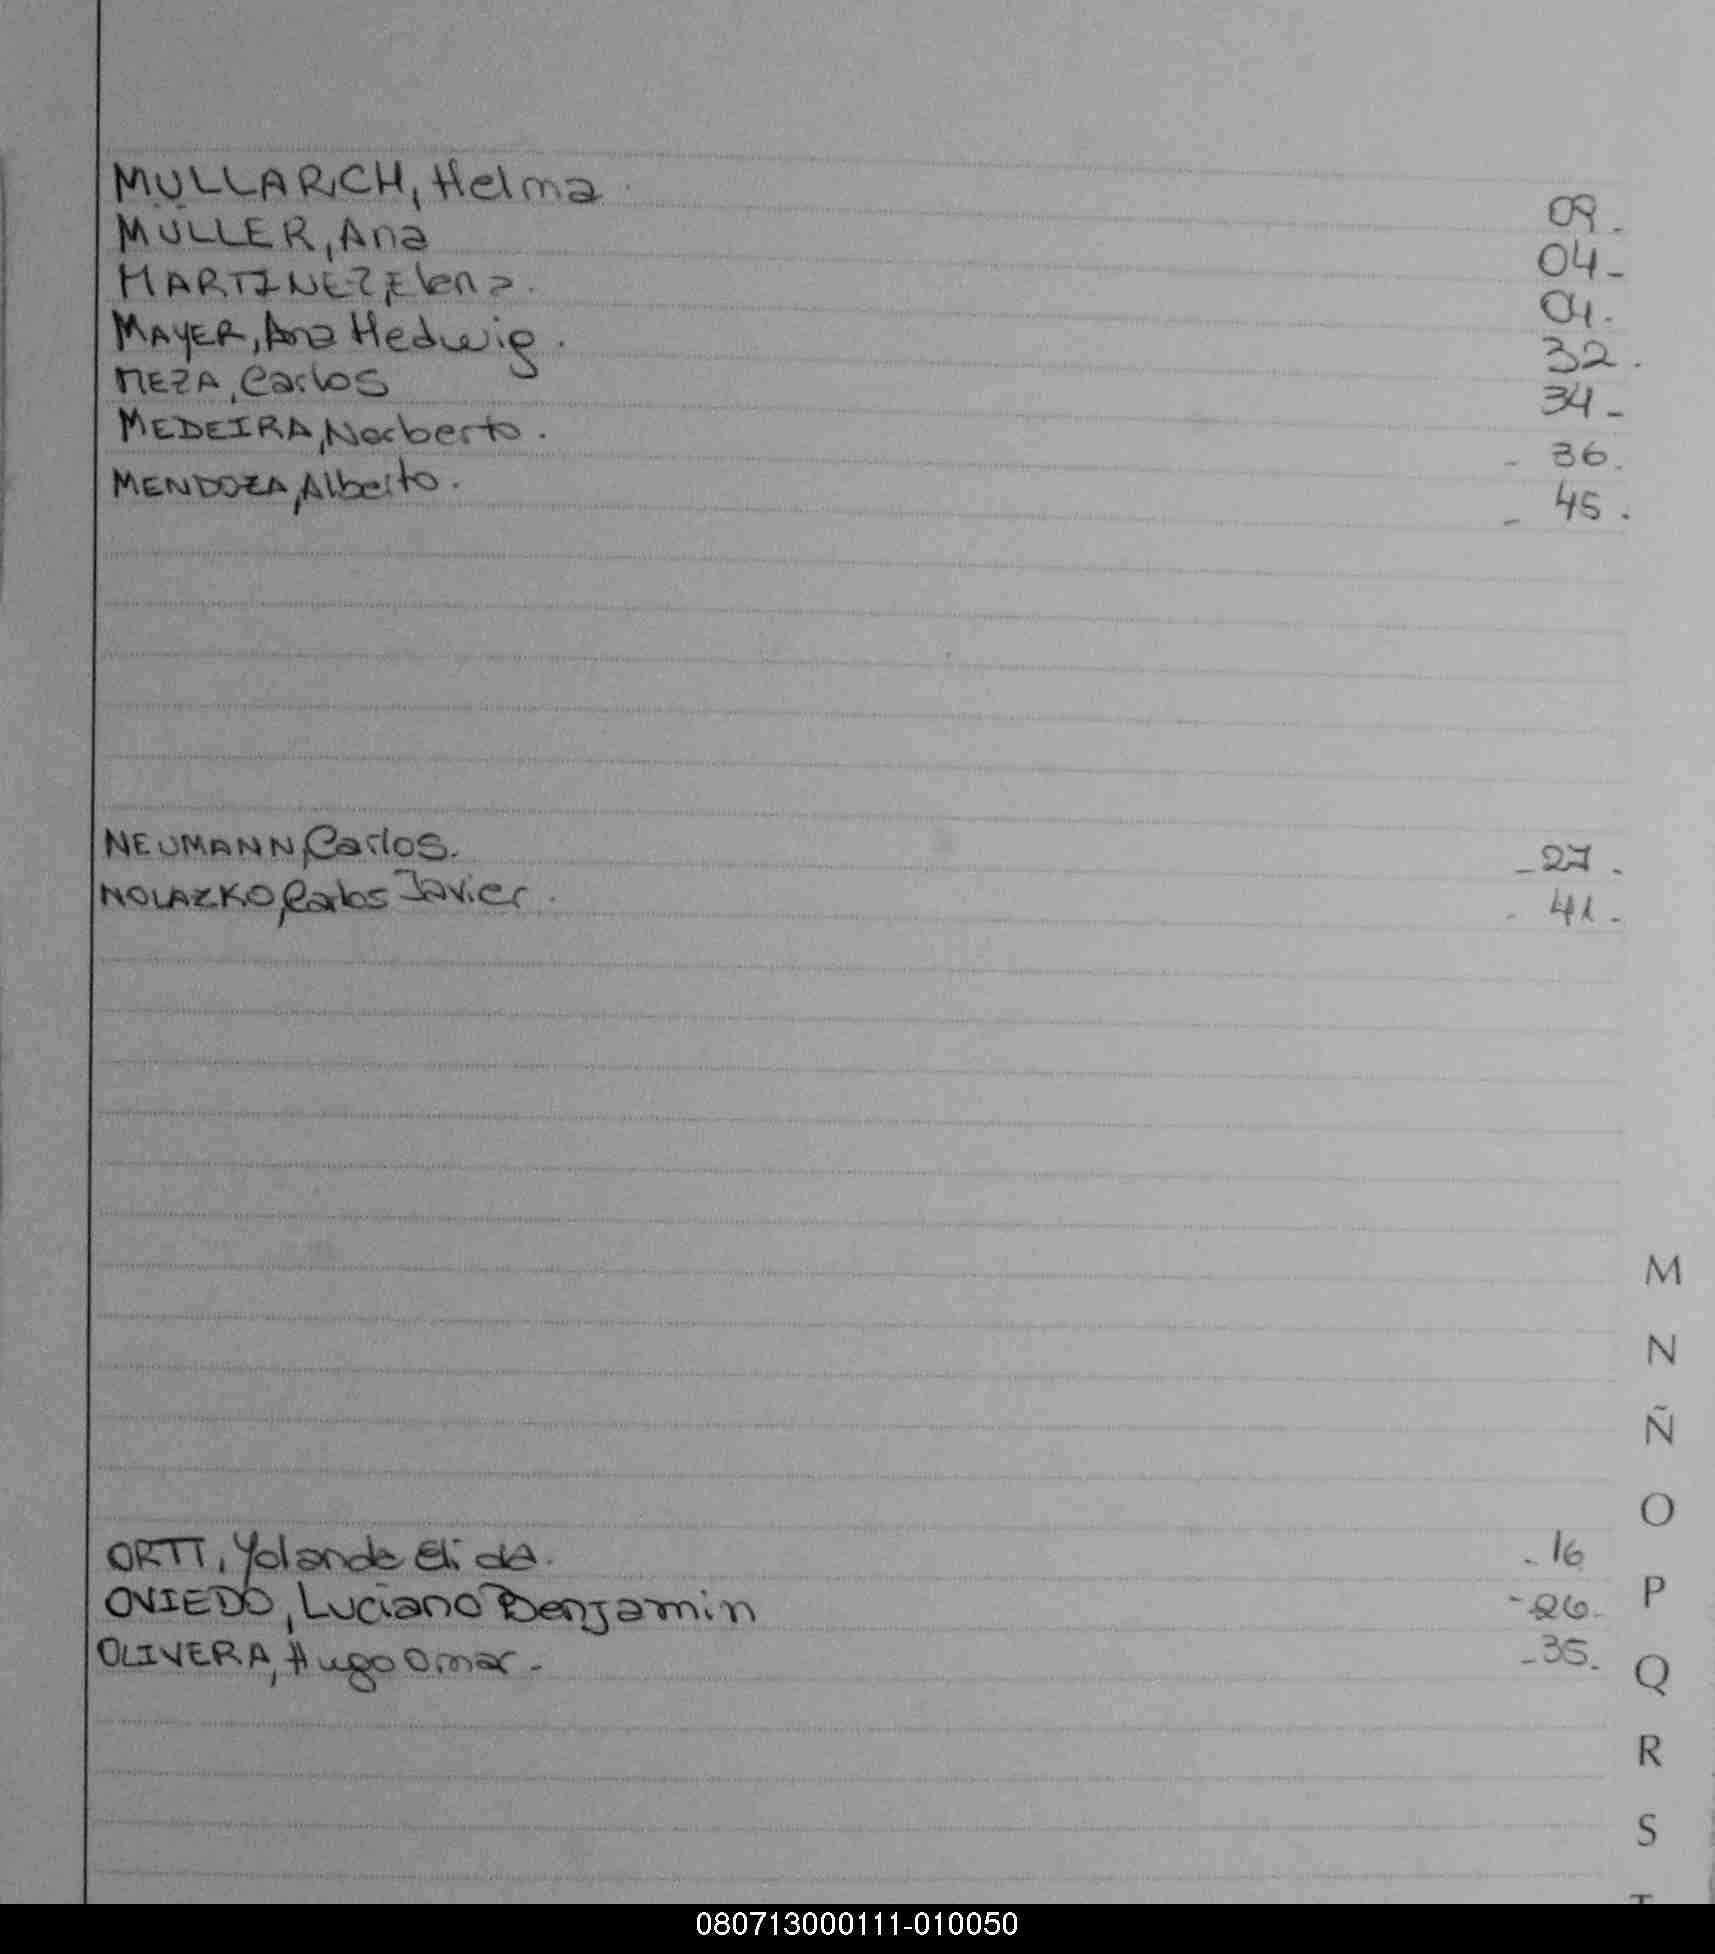 MULLARICH, Helma 09.
MÜLLER, Ana 04-
MARTINEZ, Elena. 04.
MAYER, Ana Hedwig. 32.
MEZA, Carlos 34-
MEDEIRA, Norberto. - 36.
MENDOZA, Alberto. - 45.
NEUMANN, Carlos. - 27.
NOLAZKO, Carlos Javier. - 41.
M
N
Ñ
O
ORTT, Yolanda Elida. - 16
OVIEDO, Luciano Benjamin - 26.
P
OLIVERA, Hugo Omar. - 35.
Q
R
S
T
080713000111-010050